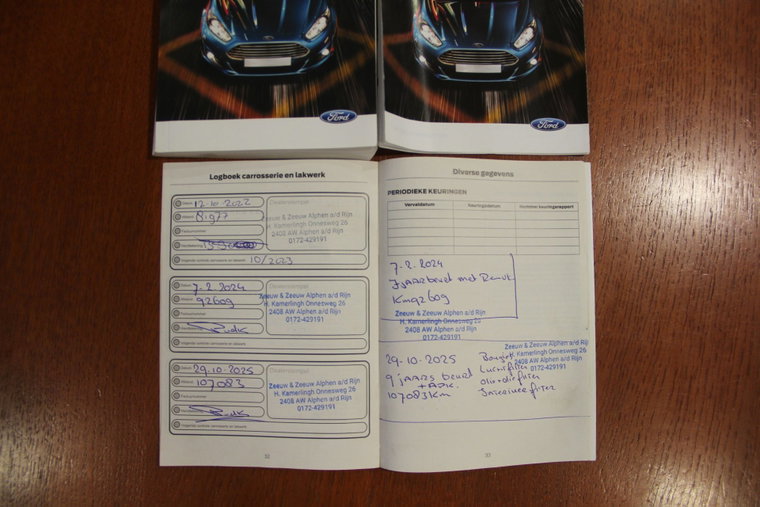 Ford
Ford
Logboek carrosserie en lakwerk
Datum 12-10-2022
Dealerstempel
Zeeuw & Zeeuw Alphen a/d Rijn
H. Kamerlingh Onnesweg 26
2408 AW Alphen a/d Rijn
0172-429191
Factuurnummer
Volgende controle carrosserie en lakwerk 10/2023
Datum 7-2.2024
Afstand 92609
Zeeuw & Zeeuw Alphen a/d Rijn
H. Kamerlingh Onnesweg 26
2408 AW Alphen a/d Rijn
0172-429191
Factuurnummer
Volgende controle carrosserie en lakwerk
Datum 29-10-2025
Afstand 107083
Dealerstempel
Zeeuw & Zeeuw Alphen a/d Rijn
H. Kamerlingh Onnesweg 26
2408 AW Alphen a/d Rijn
0172-429191
Factuurnummer
Volgende controle carrosserie en lakwerk
32
Diverse gegevens
PERIODIEKE KEURINGEN
Vervaldatum Keuringsdatum Nummer keuringsrapport
7-2.2024
7 jaar beurt met
Km 92609
Zeeuw & Zeeuw Alphen a/d Rijn
H. Kamerlingh Onnesweg 26
2408 AW Alphen a/d Rijn
0172-429191
Zeeuw & Zeeuw Alphen a/d Rijn
H. Kamerlingh Onnesweg 26
2408 AW Alphen a/d Rijn
0172-429191
29-10-2025
9 jaars beurt
+ APK.
107083 Km
Luchtfilter
Oliefilter
Interieurfilter
33